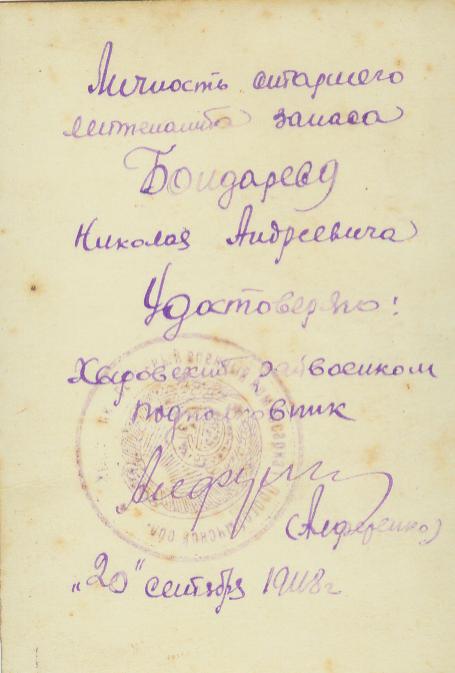 Личность старшего
лейтенанта запаса
Бондарева
Николая Андреевича
Удостоверяю:
Хыровский райвоенком
подполковник
(Алференко)
"20" сентября 1948г